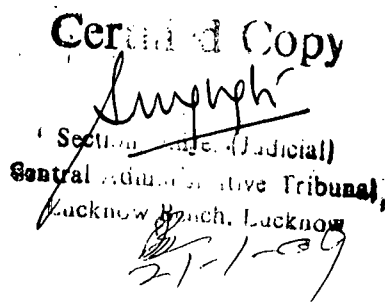 Certified Copy
Section (Judicial)
Central Administrative Tribunal,
Lucknow Bench, Lucknow
21-1-09